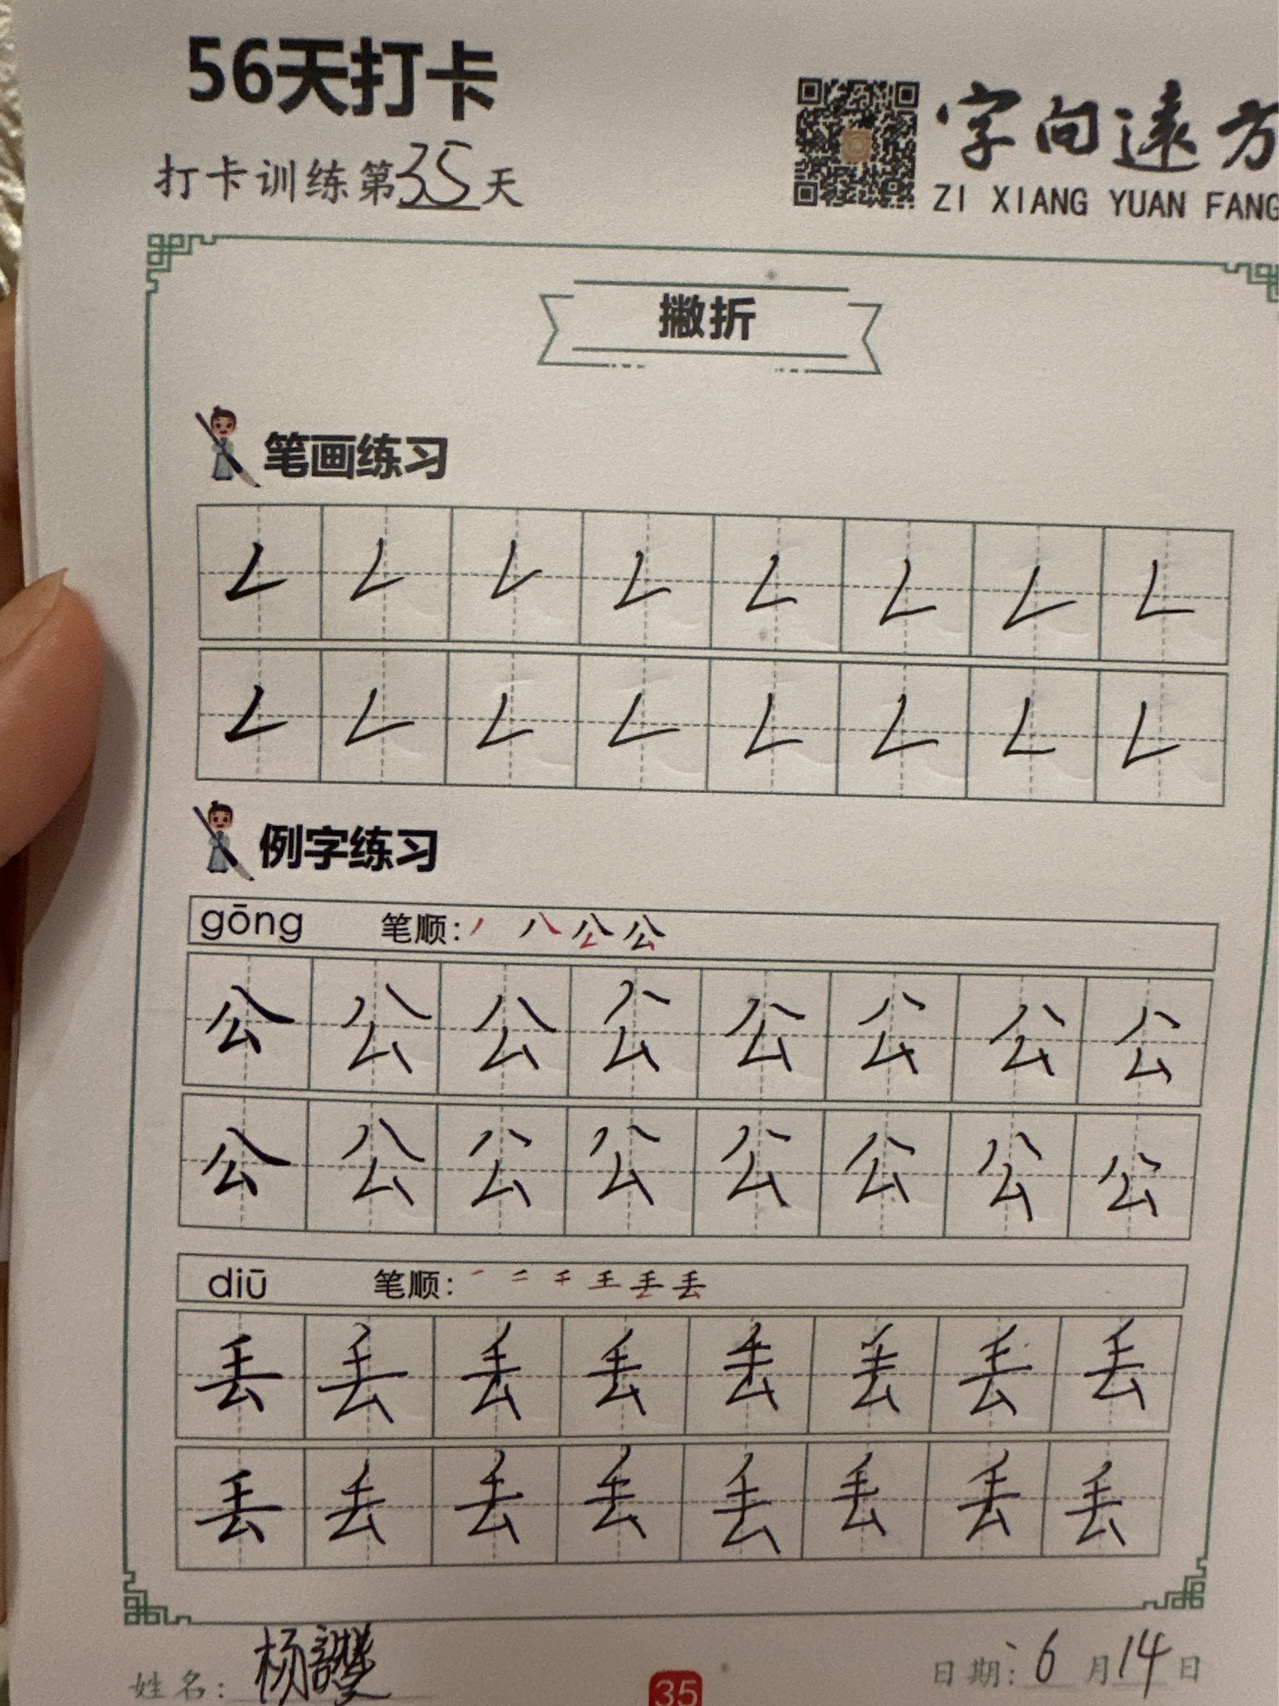 56天打卡
字向远方
打卡训练第35天
ZI XIANG YUAN FANG
撇折
笔画练习
𠃋 𠃋 𠃋 𠃋 𠃋 𠃋 𠃋 𠃋
𠃋 𠃋 𠃋 𠃋 𠃋 𠃋 𠃋 𠃋
例字练习
gōng 笔顺: 丿 八 公 公
公 公 公 公 公 公 公 公
公 公 公 公 公 公 公 公
diū 笔顺: 一 二 千 王 丢 丢
丢 丢 丢 丢 丢 丢 丢 丢
丢 丢 丢 丢 丢 丢 丢 丢
姓名: 杨
日期: 6月14日
35